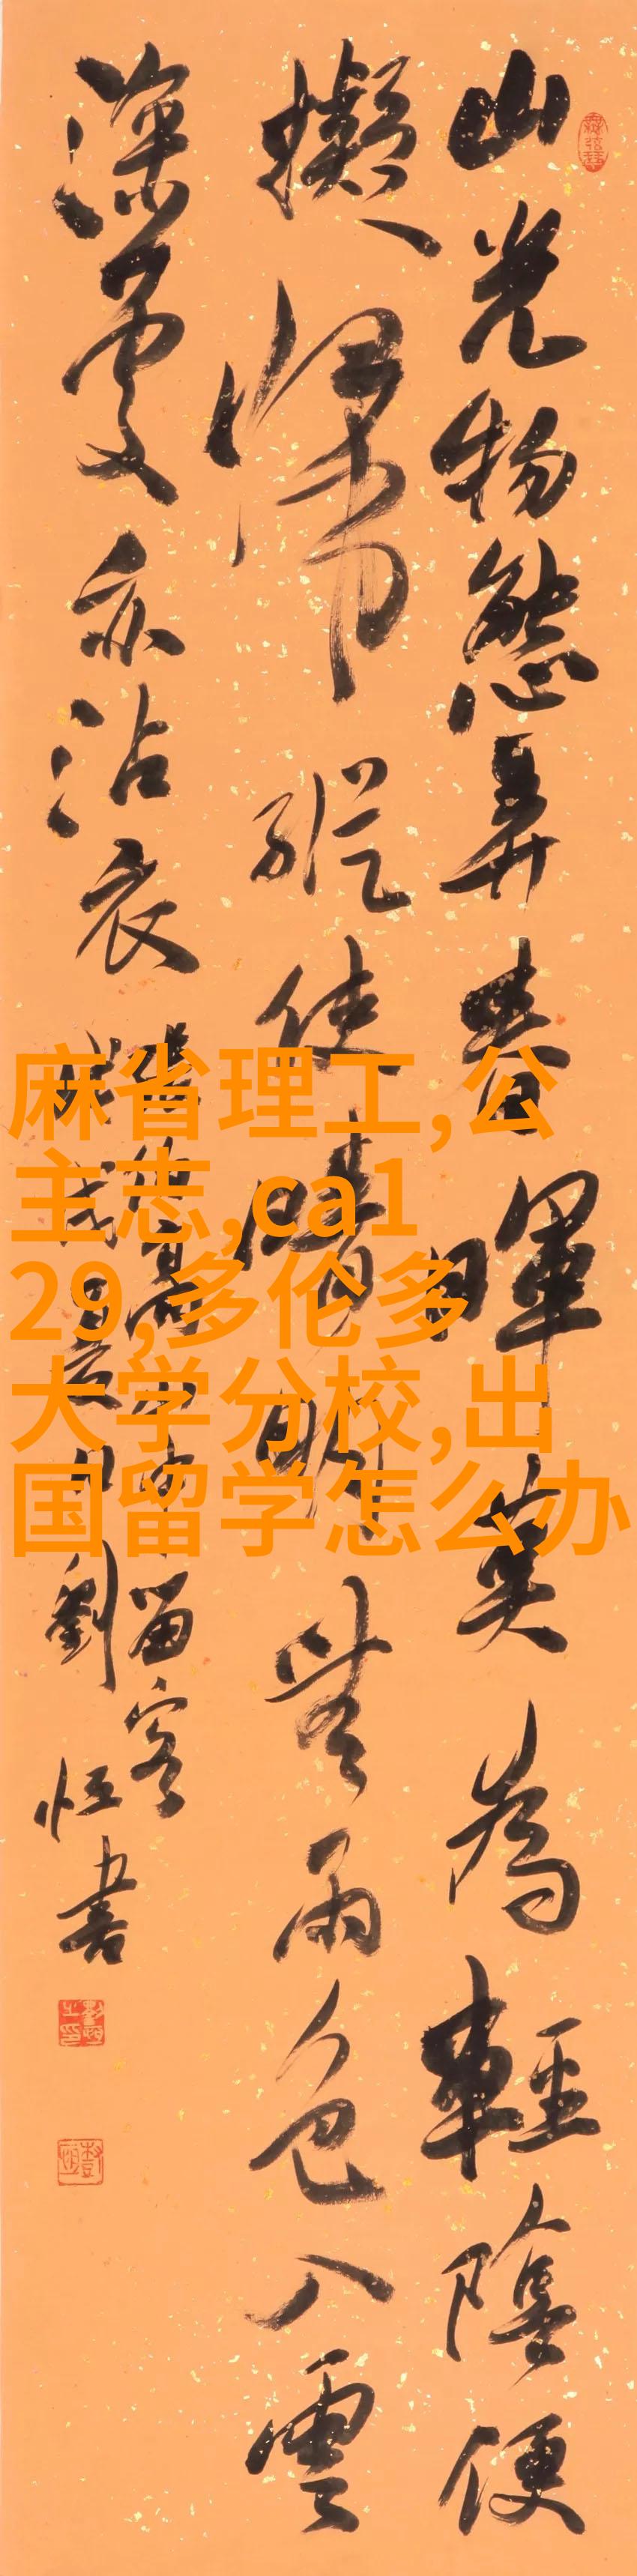 山光物態弄春暉莫為輕陰便
擬歸縱使晴明無雨色入雲
深處亦沾衣
高山中留客
劉恒書
麻省理工,公
主志,ca1
29,多伦多
大学分校,出
国留学怎么办